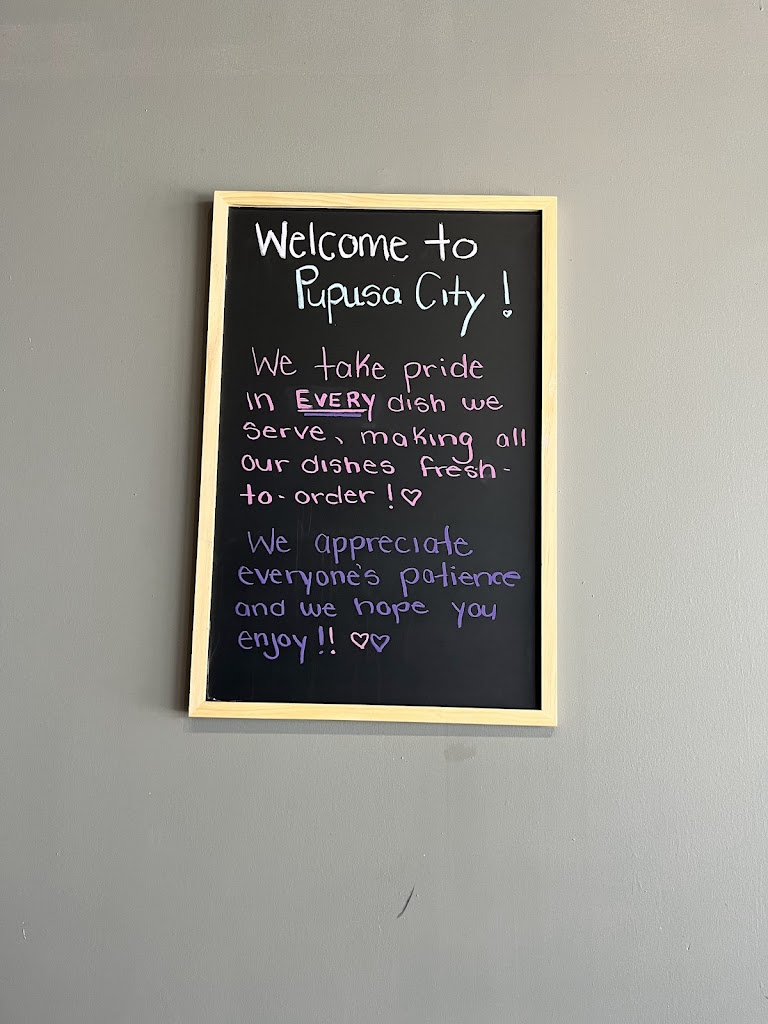 Welcome to
Pupusa City!
We take pride
in EVERY dish we
serve, making all
our dishes fresh-
to-order! ♡
We appreciate
everyone's patience
and we hope you
enjoy!! ♡♡